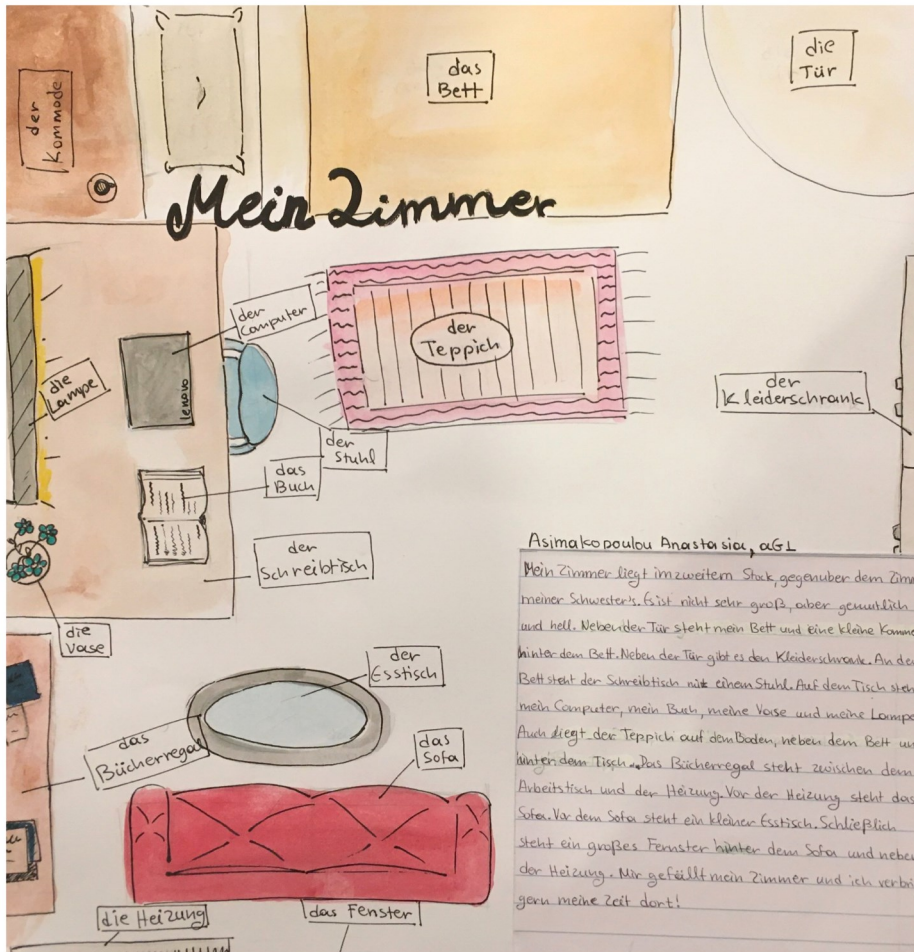 der Kommode
das Bett
die Tür
Mein Zimmer
der Computer
die Lampe
lenovo
der Teppich
der Kleiderschrank
der Stuhl
das Buch
der Schreibtisch
die Vase
der Esstisch
das Bücherregal
das Sofa
die Heizung
das Fenster
Asimakopoulou Anastasia, aG1
Mein Zimmer liegt im zweitem Stock, gegenuber dem Zim
meiner Schwester's. Es ist nicht sehr groß, aber gemutlich
und hell. Neben der Tür steht mein Bett und eine kleine Kommo
hinter dem Bett. Neben der Tür gibt es den Kleiderschrank. An dem
Bett steht der Schreibtisch mit einem Stuhl. Auf dem Tisch steh
mein Computer, mein Buch, meine Vase und meine Lampe
Auch liegt der Teppich auf den Boden, neben dem Bett un
hinter dem Tisch. Das Bücherregal steht zwischen dem
Arbeitstisch und der Heizung. Vor der Heizung steht das
Sofa. Vor dem Sofa steht ein kleiner Esstisch. Schließlich
steht ein großes Fernster hinter dem Sofa und neben
der Heizung. Mir gefällt mein Zimmer und ich verbri
gern meine Zeit dort!